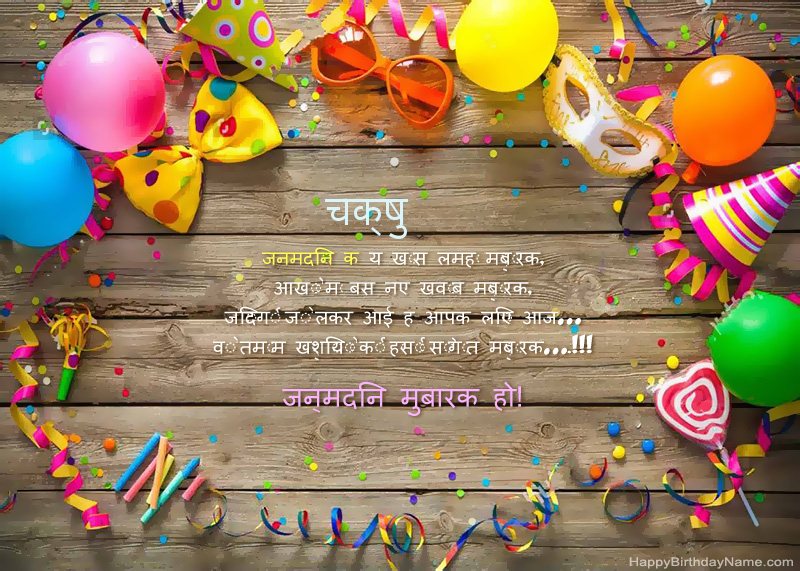 चक्षु
जनमदिन क य खास लमहा मबारक,
आखों मे बस नए खवाब मबारक,
जिंदगी जो लेकर आई ह आपक लिए आज...
वो तमाम खुशियों की हसीं सौगात मबारक...!!!
जन्मदिन मुबारक हो!
HappyBirthdayName.com